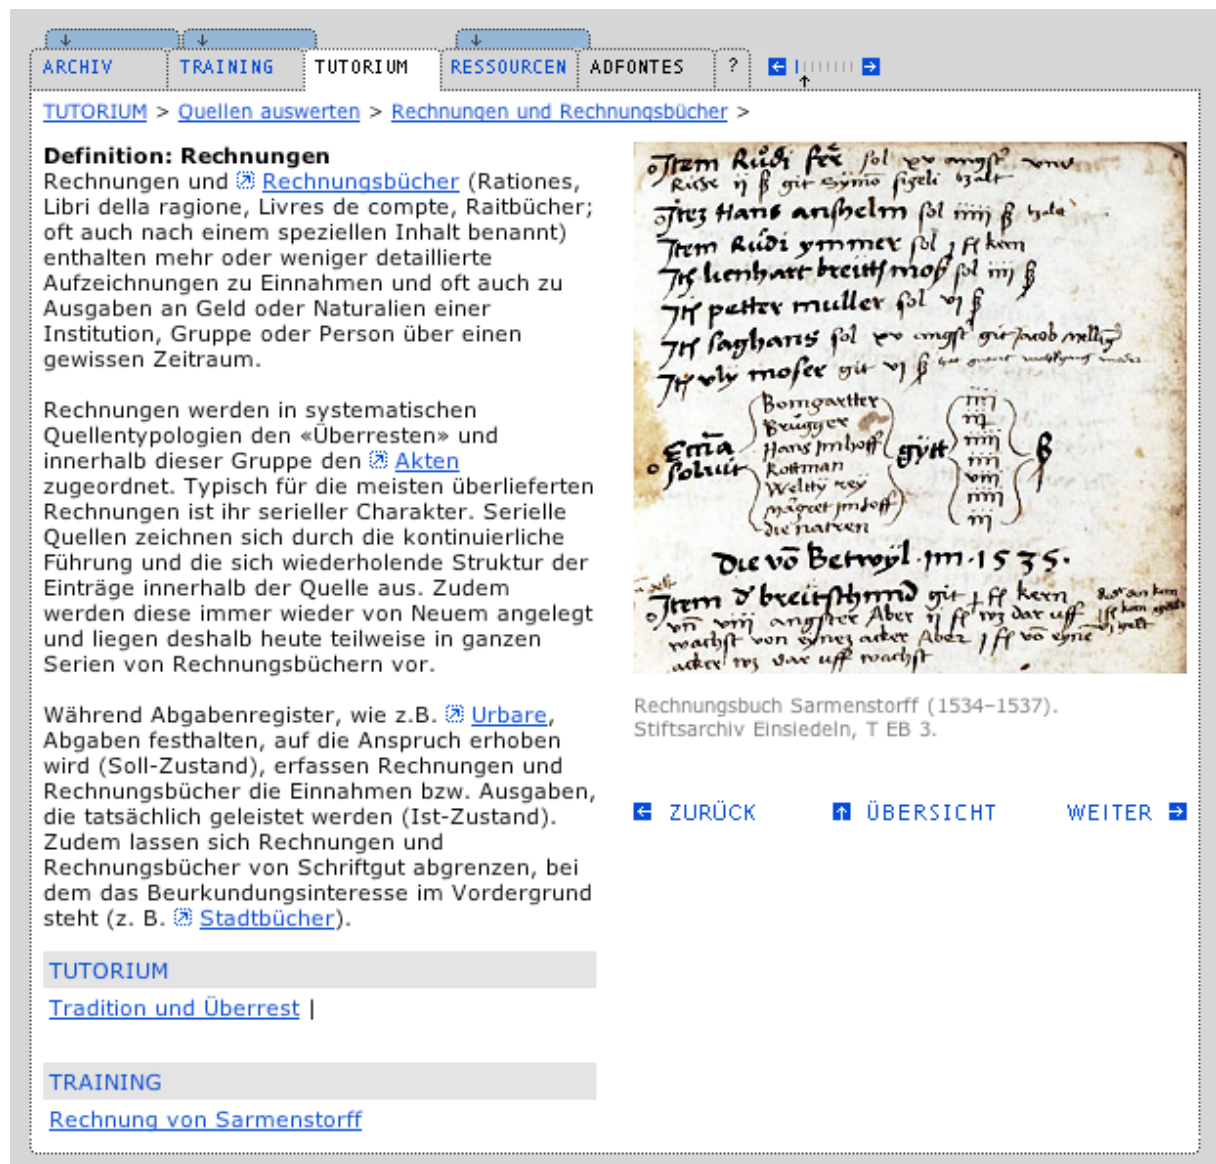 ARCHIV TRAINING TUTORIUM RESSOURCEN ADFONTES ?
TUTORIUM > Quellen auswerten > Rechnungen und Rechnungsbücher >
Definition: Rechnungen
Rechnungen und Rechnungsbücher (Rationes,
Libri della ragione, Livres de compte, Raitbücher;
oft auch nach einem speziellen Inhalt benannt)
enthalten mehr oder weniger detaillierte
Aufzeichnungen zu Einnahmen und oft auch zu
Ausgaben an Geld oder Naturalien einer
Institution, Gruppe oder Person über einen
gewissen Zeitraum.
Rechnungen werden in systematischen
Quellentypologien den «Überresten» und
innerhalb dieser Gruppe den Akten
zugeordnet. Typisch für die meisten überlieferten
Rechnungen ist ihr serieller Charakter. Serielle
Quellen zeichnen sich durch die kontinuierliche
Führung und die sich wiederholende Struktur der
Einträge innerhalb der Quelle aus. Zudem
werden diese immer wieder von Neuem angelegt
und liegen deshalb heute teilweise in ganzen
Serien von Rechnungsbüchern vor.
Während Abgabenregister, wie z.B. Urbare,
Abgaben festhalten, auf die Anspruch erhoben
wird (Soll-Zustand), erfassen Rechnungen und
Rechnungsbücher die Einnahmen bzw. Ausgaben,
die tatsächlich geleistet werden (Ist-Zustand).
Zudem lassen sich Rechnungen und
Rechnungsbücher von Schriftgut abgrenzen, bei
dem das Beurkundungsinteresse im Vordergrund
steht (z. B. Stadtbücher).
TUTORIUM
Tradition und Überrest |
TRAINING
Rechnung von Sarmenstorff
Item Růdi sol xv angster
Hans anshelm sol iiiij
Item Růdi ymmer sol j kern
lienhart sol iiij
petter muller sol vj
saghans sol xv angst git Jacob
vly moser git vj
Bomgartter
Brugger
Hans Imhoff
Rottman
Weltty rey
soluit gytt
Die vō Betwyl im 1535.
Item git j kern
vn viij angster Aber ij dar uff
wachst von eynez acker Aber j vō eyne
acker dar uff wachst
Rechnungsbuch Sarmenstorff (1534–1537).
Stiftsarchiv Einsiedeln, T EB 3.
ZURÜCK ÜBERSICHT WEITER